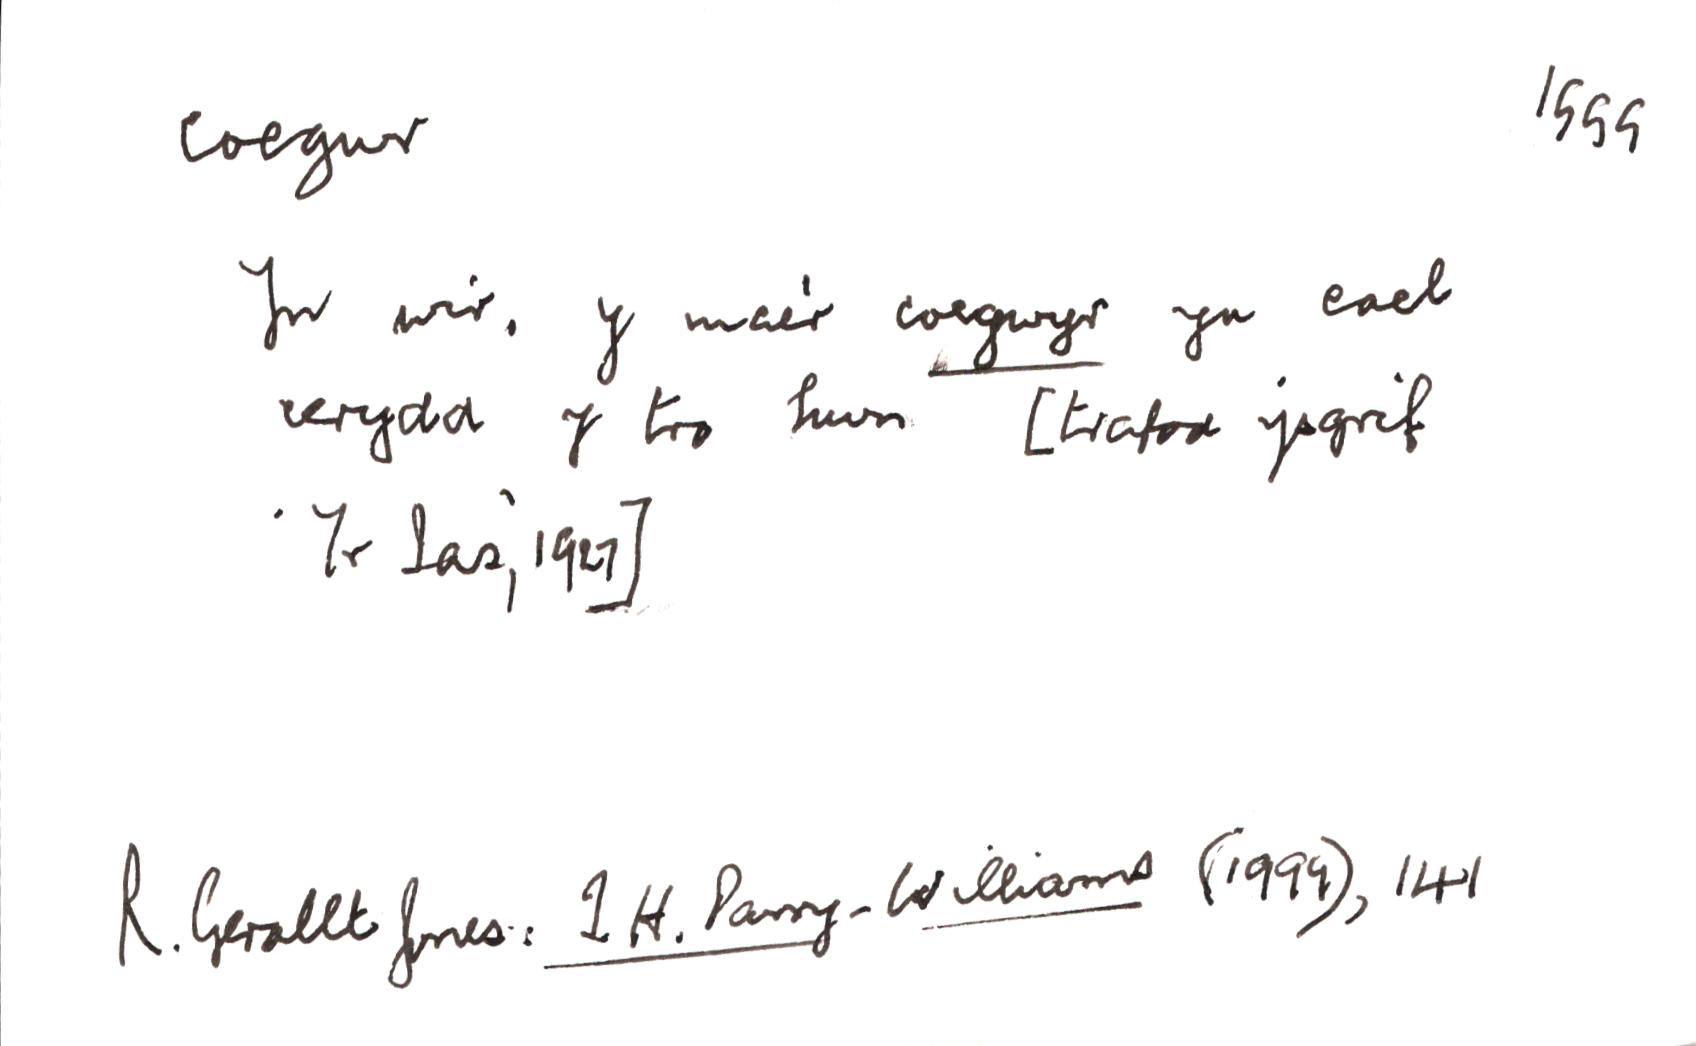 coegwr
1999
Yn wir, y mae'r coegwyr yn cael
rerydd y tro hwn [trafod ysgrif
'Yr Ias', 1927]
R. Gerallt Jones: T. H. Parry-Williams (1999), 141